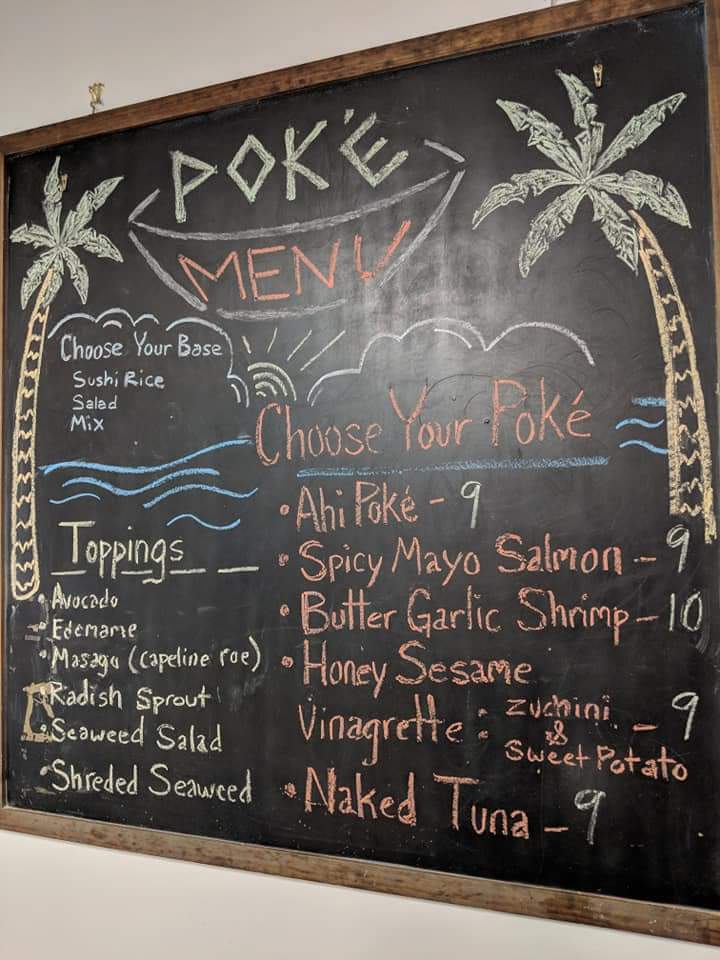 POKÉ
MENU
Choose Your Base
Sushi Rice
Salad
Mix
Choose Your Poké
• Ahi Poké - 9
• Spicy Mayo Salmon - 9
• Butter Garlic Shrimp - 10
• Honey Sesame
Vinagrette: Zuchini & Sweet Potato - 9
• Naked Tuna - 9
Toppings
• Avocado
• Edemame
• Masago (capeline roe)
• Radish Sprout
• Seaweed Salad
• Shreded Seaweed